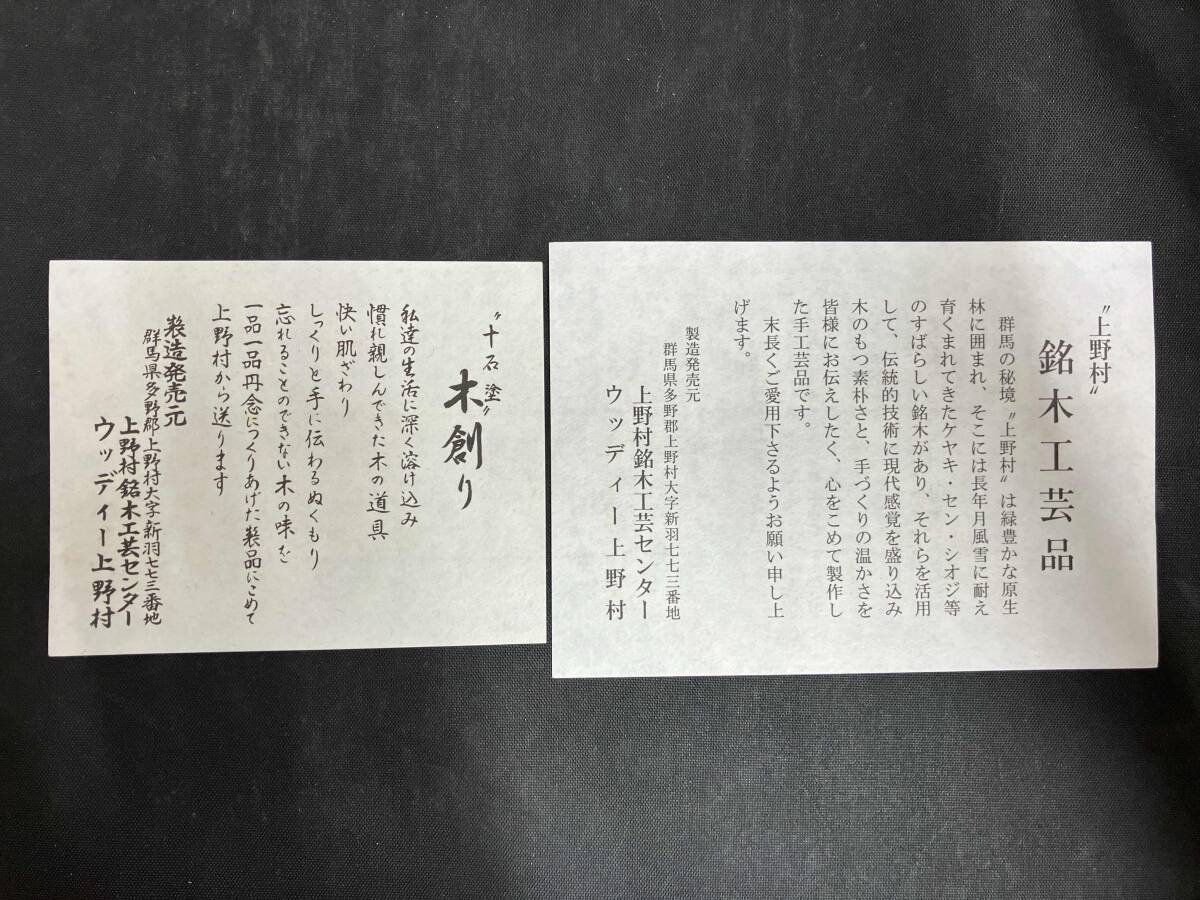 〝上野村〟
銘木工芸品
群馬の秘境〝上野村〟は緑豊かな原生
林に囲まれ、そこには長年月風雪に耐え
育くまれてきたケヤキ・セン・シオジ等
のすばらしい銘木があり、それらを活用
して、伝統的技術に現代感覚を盛り込み
木のもつ素朴さと、手づくりの温かさを
皆様にお伝えしたく、心をこめて製作し
た手工芸品です。
末長くご愛用下さるようお願い申し上
げます。
製造発売元
群馬県多野郡上野村大字新羽七七三番地
上野村銘木工芸センター
ウッディー上野村
〝十石塗〟
木創り
私達の生活に深く溶け込み
慣れ親しんできた木の道具
快い肌ざわり
しっくりと手に伝わるぬくもり
忘れることのできない木の味を
一品一品丹念につくりあげた製品にこめて
上野村から送ります
製造発売元
群馬県多野郡上野村大字新羽七七三番地
上野村銘木工芸センター
ウッディー上野村